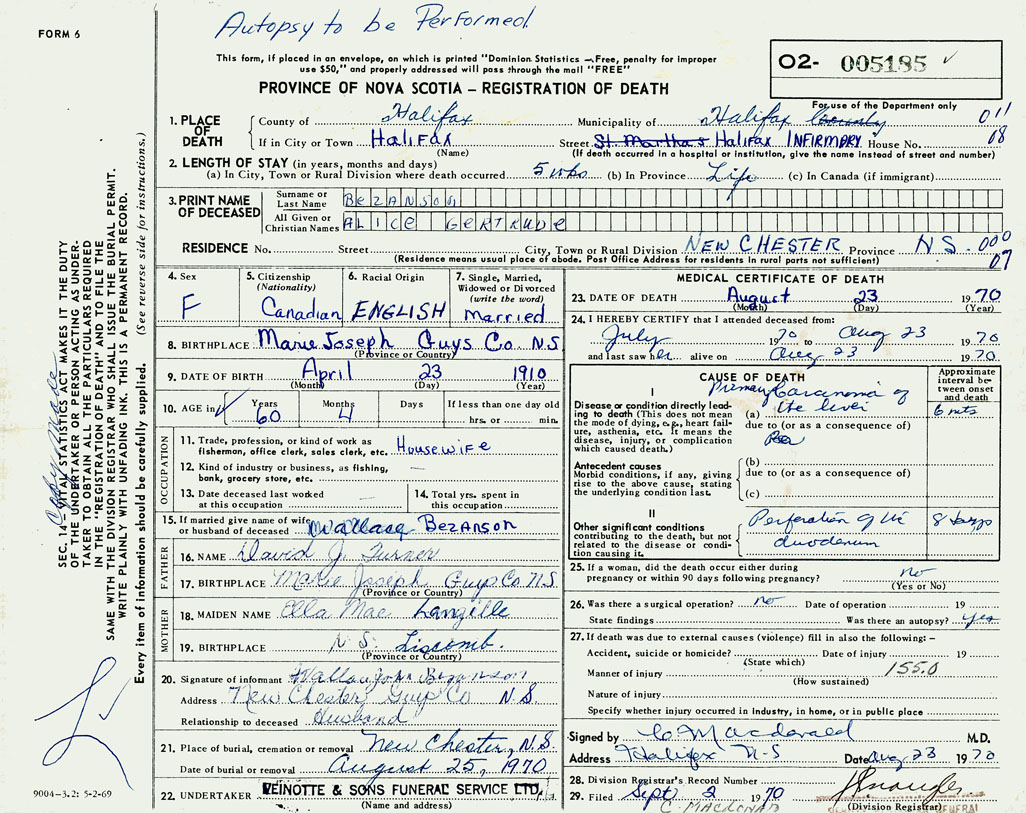 Autopsy to be Performed
FORM 6
This form, if placed in an envelope, on which is printed "Dominion Statistics — Free, penalty for improper
use $50," and properly addressed will pass through the mail "FREE"
O2- 005185 ✓
PROVINCE OF NOVA SCOTIA – REGISTRATION OF DEATH
For use of the Department only
1. PLACE OF DEATH County of Halifax Municipality of Halifax County 011
If in City or Town Halifax Street St. Martha's Halifax INFIRMARY House No. 08
(Name) (If death occurred in a hospital or institution, give the name instead of street and number)
2. LENGTH OF STAY (in years, months and days)
(a) In City, Town or Rural Division where death occurred 5 wks (b) In Province Life (c) In Canada (if immigrant)
3. PRINT NAME OF DECEASED Surname or Last Name BeZANSON
All Given or Christian Names ALICE GERTRUDE
RESIDENCE No. Street City, Town or Rural Division NEW CHESTER Province N.S. 000
(Residence means usual place of abode. Post Office Address for residents in rural parts not sufficient) 07
4. Sex F
5. Citizenship (Nationality) Canadian
6. Racial Origin ENGLISH
7. Single, Married, Widowed or Divorced (write the word) Married
8. BIRTHPLACE Marie Joseph Guys Co N.S
(Province or Country)
9. DATE OF BIRTH April 23 1910
(Month) (Day) (Year)
10. AGE in Years 60 Months 4 Days If less than one day old hrs. or min.
OCCUPATION
11. Trade, profession, or kind of work as fisherman, office clerk, sales clerk, etc. Housewife
12. Kind of industry or business, as fishing, bank, grocery store, etc. —
13. Date deceased last worked at this occupation —
14. Total yrs. spent in this occupation —
15. If married give name of wife or husband of deceased Wallace Bezanson
FATHER
16. NAME David J. Turner
17. BIRTHPLACE Marie Joseph Guys Co. N.S.
(Province or Country)
MOTHER
18. MAIDEN NAME Ella Mae Langille
19. BIRTHPLACE N.S. Liscomb.
(Province or Country)
20. Signature of informant Wallace John Bezanson
Address New Chester Guys Co N.S.
Relationship to deceased Husband
21. Place of burial, cremation or removal New Chester, N.S.
Date of burial or removal August 25, 1970
22. UNDERTAKER VEINOTTE & SONS FUNERAL SERVICE LTD.
(Name and address)
MEDICAL CERTIFICATE OF DEATH
23. DATE OF DEATH August 23 1970
(Month) (Day) (Year)
24. I HEREBY CERTIFY that I attended deceased from:
July 1970 to Aug 23 1970
and last saw her alive on Aug 23 1970
CAUSE OF DEATH
Approximate interval between onset and death
I
Disease or condition directly leading to death (This does not mean the mode of dying, e.g., heart failure, asthenia, etc. It means the disease, injury, or complication which caused death.)
(a) Primary Carcinoma of the liver 6 mts
due to (or as a consequence of)
Antecedent causes
Morbid conditions, if any, giving rise to the above cause, stating the underlying condition last.
(b)
due to (or as a consequence of)
(c)
II
Other significant conditions contributing to the death, but not related to the disease or condition causing it.
Perforation of the duodenum 8 days
25. If a woman, did the death occur either during pregnancy or within 90 days following pregnancy? no
(Yes or No)
26. Was there a surgical operation? no Date of operation 19
State findings Was there an autopsy? yes
27. If death was due to external causes (violence) fill in also the following: –
Accident, suicide or homicide? Date of injury 19
(State which)
Manner of injury 155.0
(How sustained)
Nature of injury
Specify whether injury occurred in Industry, in home, or in public place
Signed by C. Macdonald M.D.
Address Halifax N-S Date Aug 23 1970
28. Division Registrar's Record Number
29. Filed Sept 2 1970
C. MACDONALD (Division Registrar)
GENERAL
SEC. 14— VITAL STATISTICS ACT MAKES IT THE DUTY
OF THE UNDERTAKER OR PERSON ACTING AS UNDER-
TAKER TO OBTAIN ALL THE PARTICULARS REQUIRED
IN THE "REGISTRATION OF DEATH" AND TO FILE THE
SAME WITH THE DIVISION REGISTRAR WHO SHALL ISSUE THE BURIAL PERMIT.
WRITE PLAINLY WITH UNFADING INK. THIS IS A PERMANENT RECORD.
Every item of information should be carefully supplied. (See reverse side for instructions.)
9004-3.2: 5-2-69